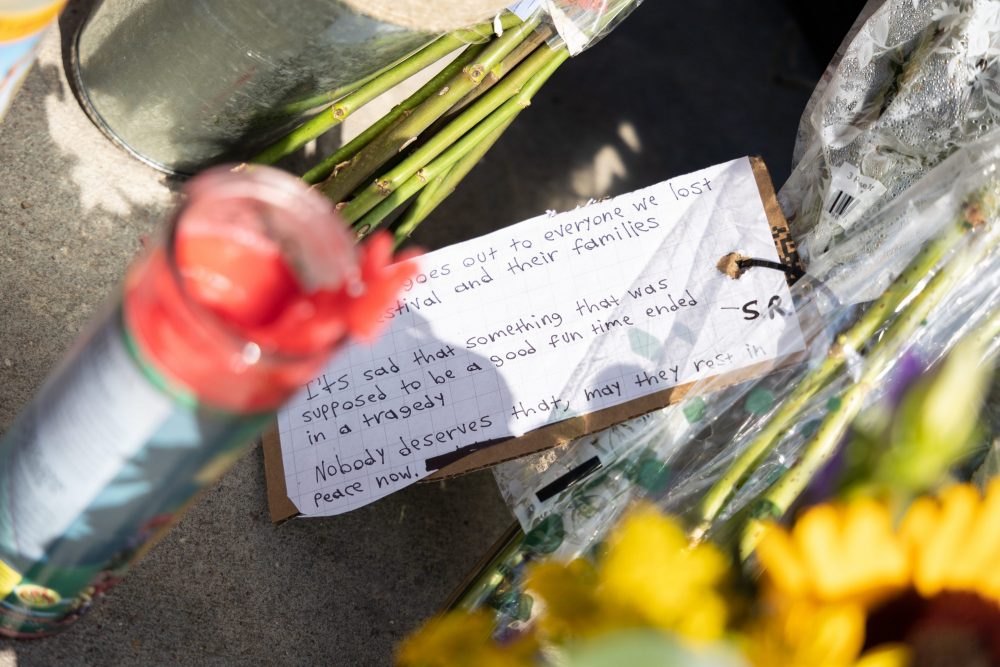 goes out to everyone we lost
stival and their families
I'ts sad that something that was
supposed to be a good fun time ended
in a tragedy
Nobody deserves that, may they rest in
peace now.
-S.R.